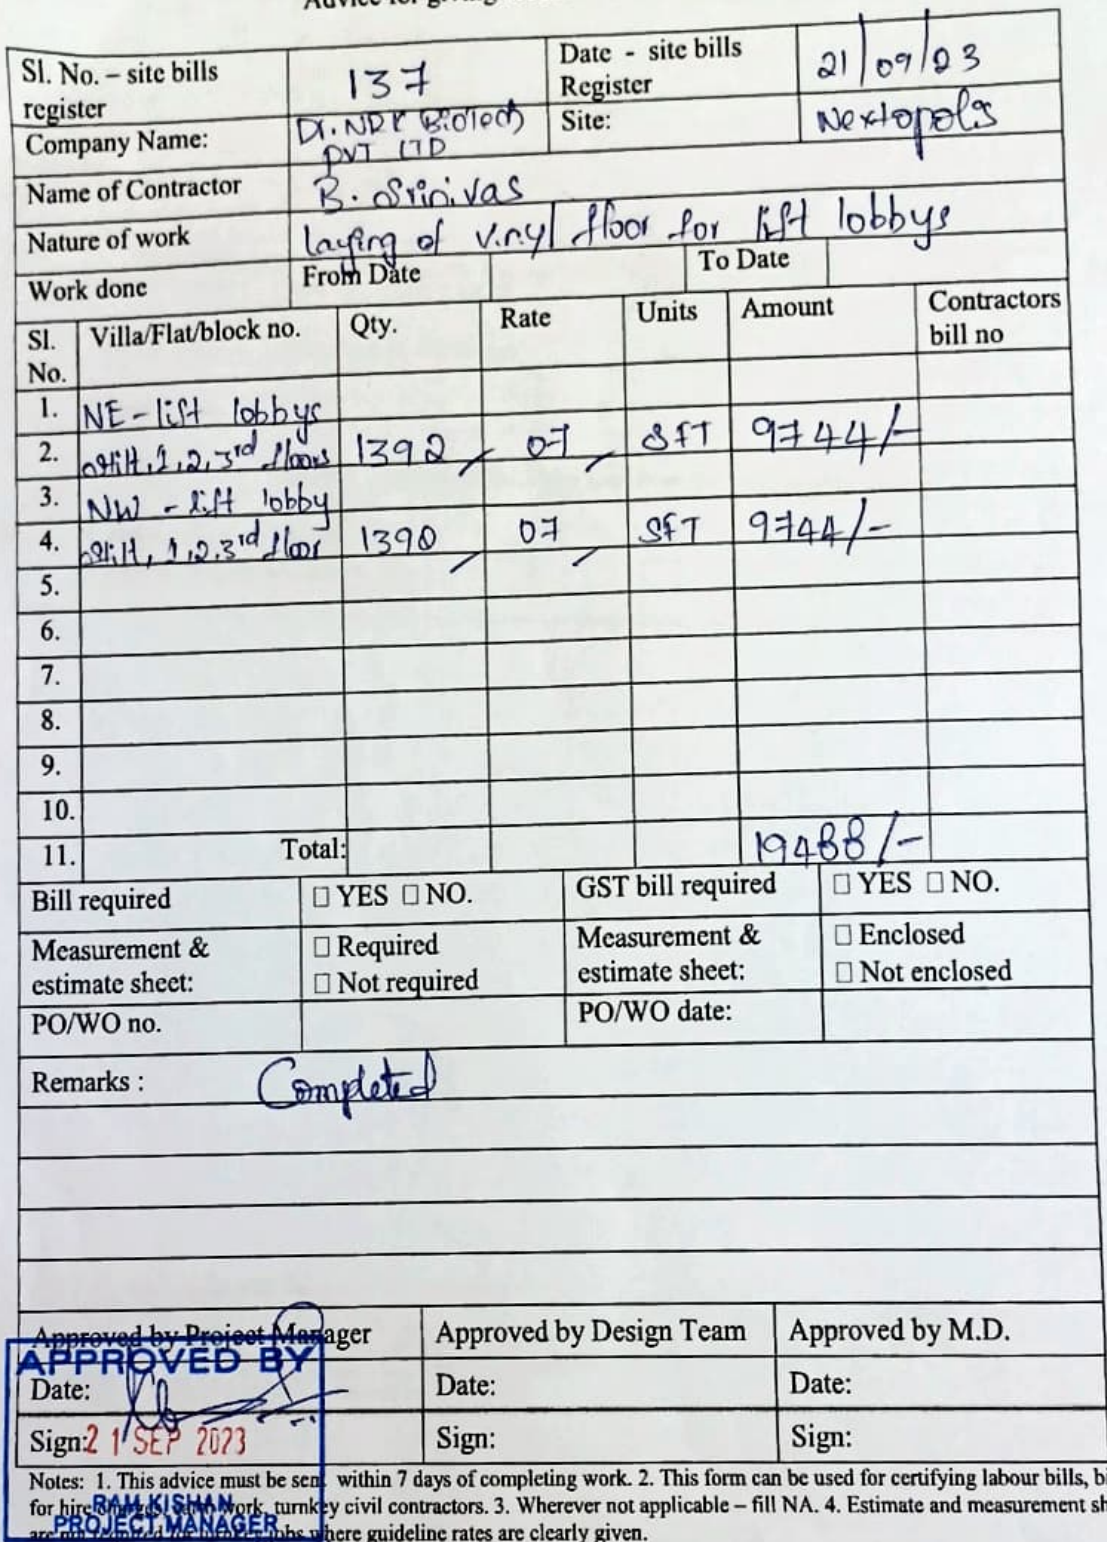 Sl. No. – site bills register 137 Date - site bills Register 21/09/23
Company Name: Dr. NRK Biotech PVT LTD Site: Nextopolis
Name of Contractor B. Srinivas
Nature of work laying of vinyl floor for lift lobbys
Work done From Date To Date
Sl. No. Villa/Flat/block no. Qty. Rate Units Amount Contractors bill no
1. NE - lift lobbys
2. stilt, 1, 2, 3rd floors 1392 07 SFT 9744/-
3. NW - lift lobby
4. stilt, 1, 2, 3rd floor 1392 07 SFT 9744/-
5.
6.
7.
8.
9.
10.
11. Total: 19488/-
Bill required □ YES □ NO. GST bill required □ YES □ NO.
Measurement & estimate sheet: □ Required □ Not required Measurement & estimate sheet: □ Enclosed □ Not enclosed
PO/WO no. PO/WO date:
Remarks : Completed
Approved by Project Manager Approved by Design Team Approved by M.D.
APPROVED BY
Date: Date: Date:
Sign: 21 SEP 2023 Sign: Sign:
Notes: 1. This advice must be sent within 7 days of completing work. 2. This form can be used for certifying labour bills,
for hire work, turnkey civil contractors. 3. Wherever not applicable – fill NA. 4. Estimate and measurement
RAM KISHAN
PROJECT MANAGER
are not required for jobs where guideline rates are clearly given.